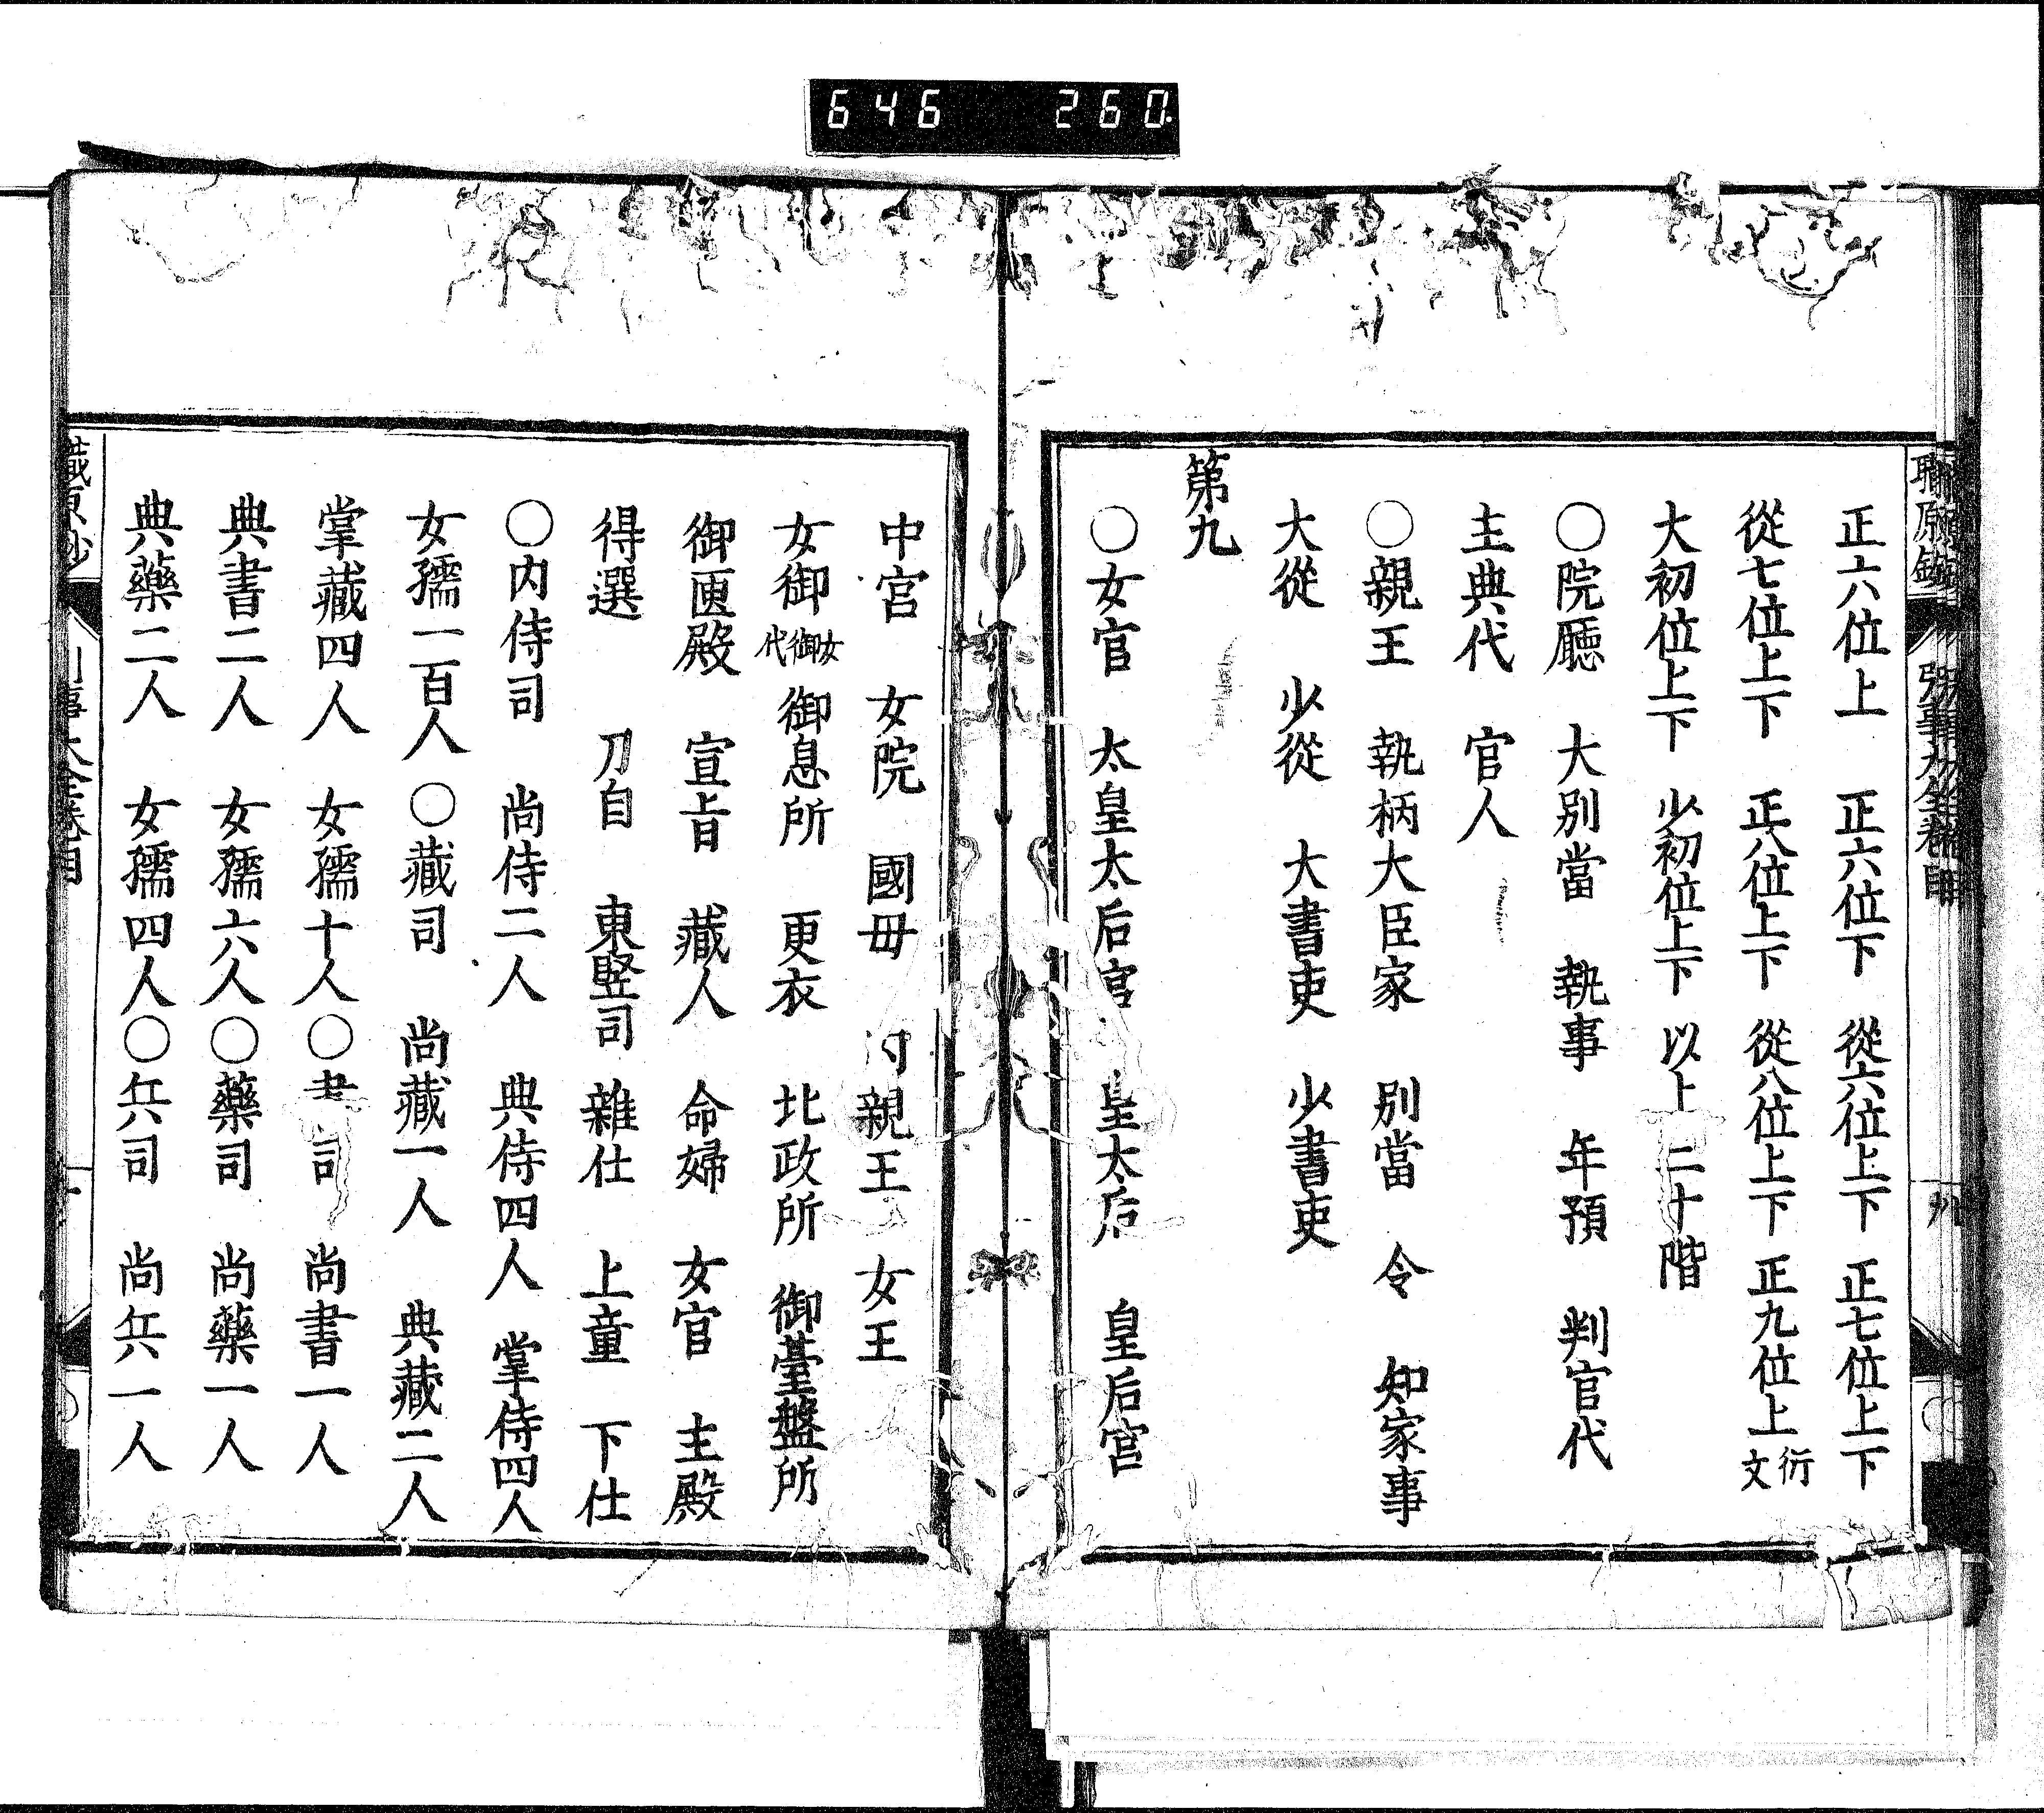 646 260
正六位上 正六位下 從六位上下 正七位上下
從七位上下 正八位上下 從八位上下 正九位上衍文
大初位上下 少初位上下 以上二十階
〇院廳 大別當 執事 年預 判官代
主典代 官人
〇親王 執柄大臣家 別當 令 知家事
大從 少從 大書吏 少書吏
第九
〇女官 太皇太后宮 皇太后 皇后宮
中宮 女院 國母 内親王 女王
女御女御代 御息所 更衣 北政所 御臺盤所
御匣殿 宣旨 藏人 命婦 女官 主殿
得選 刀自 東竪司 雜仕 上童 下仕
〇内侍司 尚侍二人 典侍四人 掌侍四人
女孺一百人〇藏司 尚藏一人 典藏二人
掌藏四人 女孺十人〇書司 尚書一人
典書二人 女孺六人〇藥司 尚藥一人
典藥二人 女孺四人〇兵司 尚兵一人